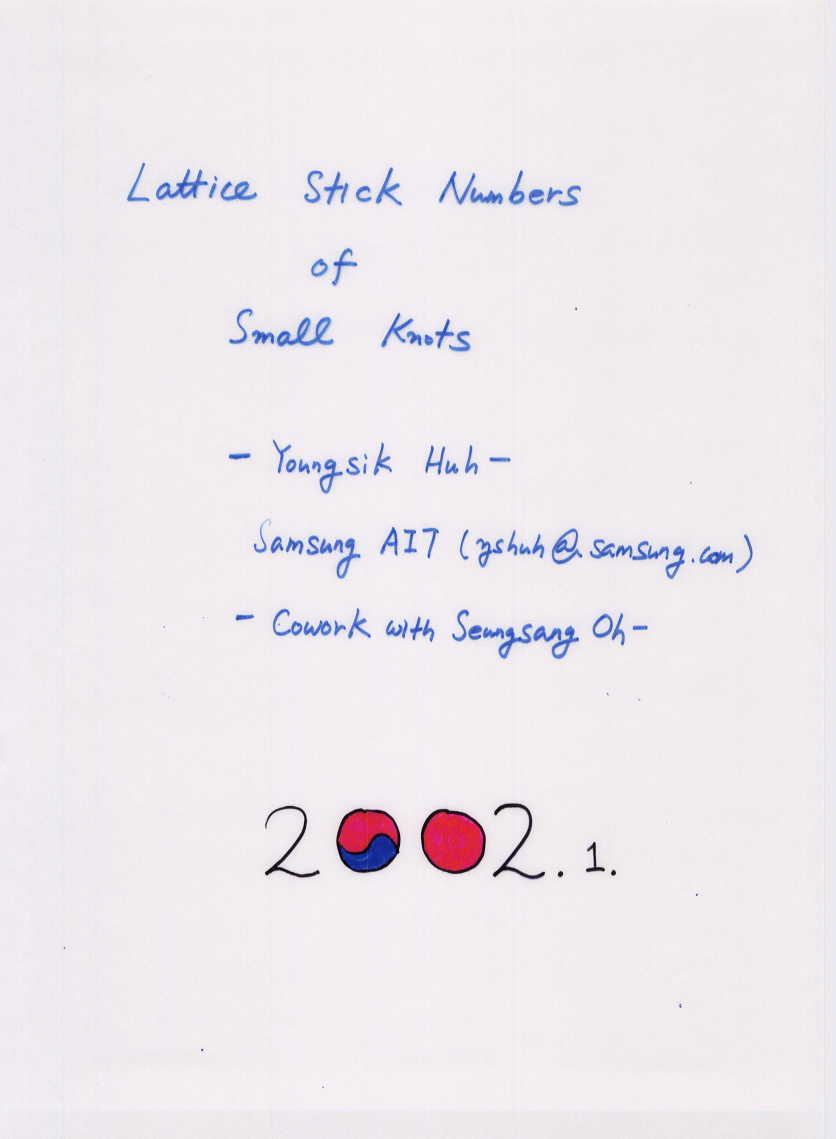 Lattice Stick Numbers
of
Small Knots
- Youngsik Huh -
Samsung AIT (yshuh@samsung.com)
- Cowork with Seungsang Oh -
2002. 1.